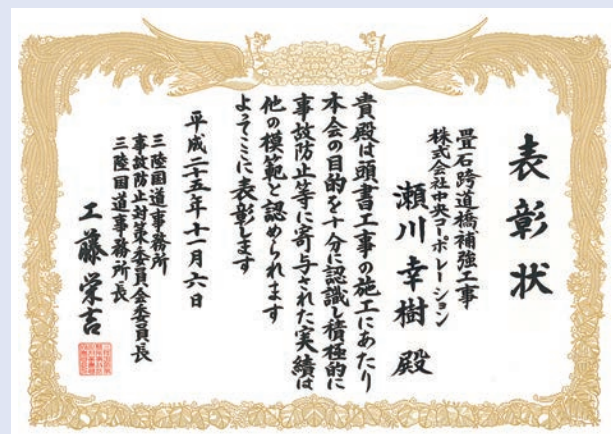 表彰状
畳石跨道橋補強工事
株式会社中央コーポレーション
瀬川幸樹 殿
貴殿は頭書工事の施工にあたり
本会の目的を十分に認識し積極的に
事故防止等に寄与された実績は
他の模範と認められます
よってここに表彰します
平成二十五年十一月六日
三陸国道事務所
事故防止対策委員会委員長
三陸国道事務所長
工藤栄吉